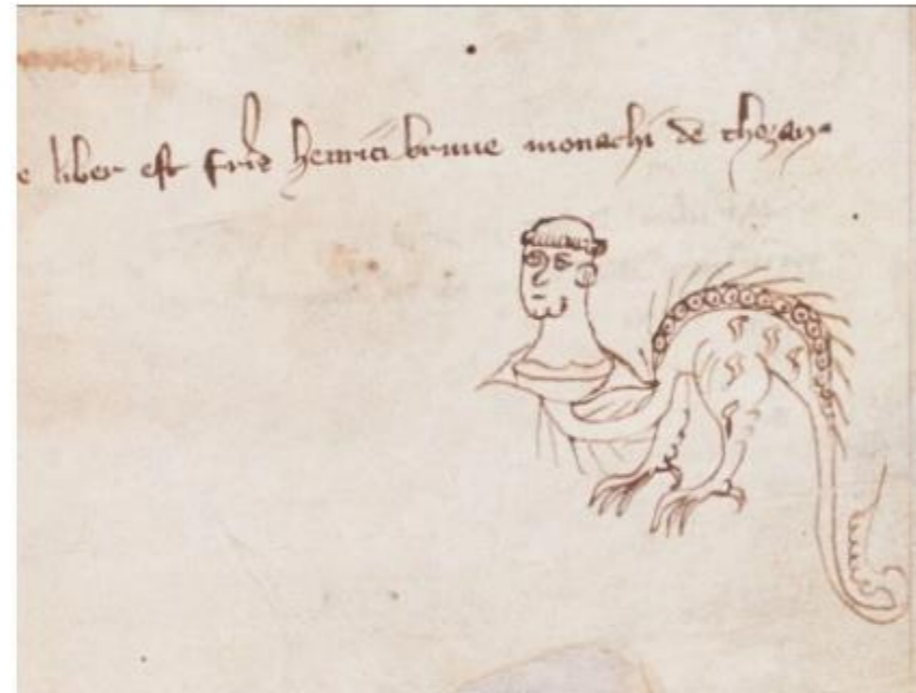 e liber est fris henrici brune monachi de thozan